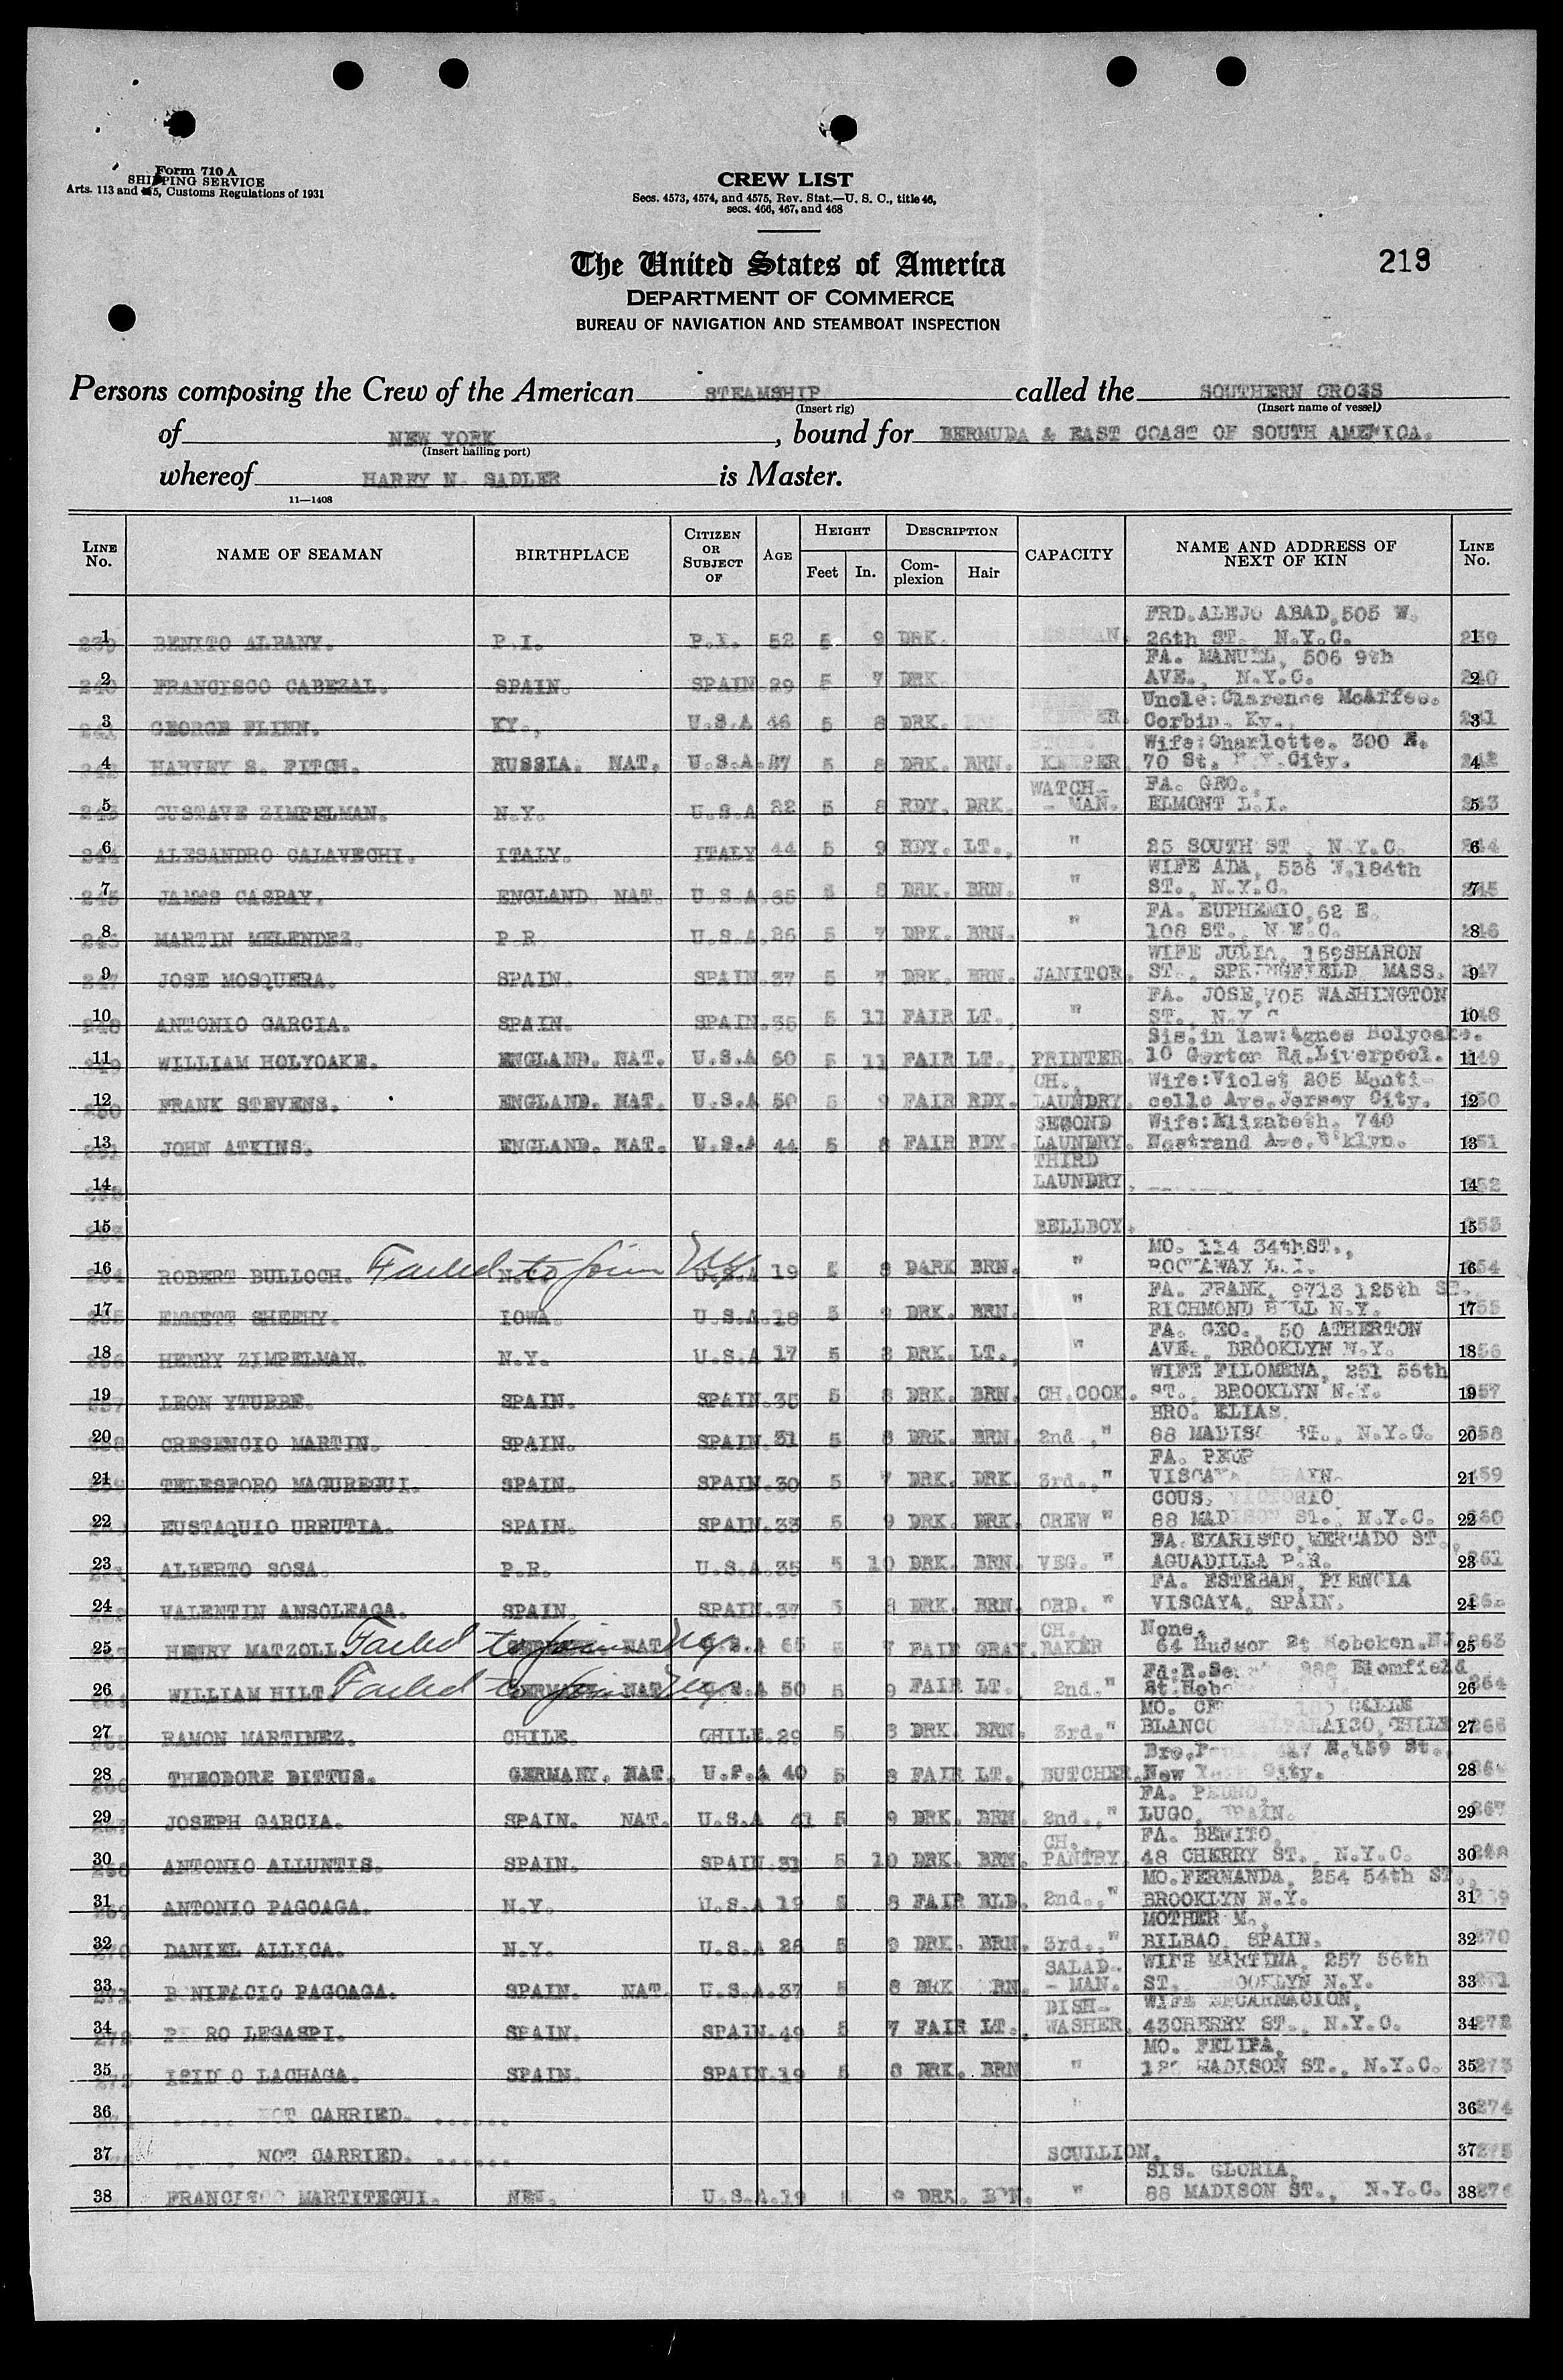 Form 710 A
SHIPPING SERVICE
Arts. 113 and 115, Customs Regulations of 1931
CREW LIST
Secs. 4573, 4574, and 4575, Rev. Stat.—U. S. C., title 46,
secs. 466, 467, and 468
The United States of America
213
DEPARTMENT OF COMMERCE
BUREAU OF NAVIGATION AND STEAMBOAT INSPECTION
Persons composing the Crew of the American STEAMSHIP called the SOUTHERN CROSS
(Insert rig) (Insert name of vessel)
of NEW YORK, bound for BERMUDA & EAST COAST OF SOUTH AMERICA.
(Insert hailing port)
whereof HARRY N. SADLER is Master.
11—1408
LINE No. NAME OF SEAMAN BIRTHPLACE CITIZEN OR SUBJECT OF AGE HEIGHT Feet In. DESCRIPTION Complexion Hair CAPACITY NAME AND ADDRESS OF NEXT OF KIN LINE No.
FRD. ALEJO ABAD, 505 W.
1 239 BENITO ALBANY. P.I. P.I. 52 5 9 DRK. 26th ST. N.Y.C. 1 239
FA. MANUEL, 506 9th
2 240 FRANCISCO CABEZAL. SPAIN. SPAIN 29 5 7 DRK. AVE., N.Y.C. 2 240
Uncle: Clarence McAffee.
3 241 GEORGE FLINN. KY., U.S.A 46 5 8 DRK. Corbin. Ky. 3 241
Wife: Charlotte. 300 E.
4 242 HARVEY S. FITCH. RUSSIA. NAT. U.S.A. 37 5 8 DRK. BRN. KEEPER 70 St. N.Y.City. 4 242
WATCH- FA. GEO.,
5 243 GUSTAVE ZIMPELMAN. N.Y. U.S.A 22 5 8 RDY. DRK. - MAN. ELMONT L.I. 5 243
6 244 ALESANDRO CALAVECHI. ITALY. ITALY 44 5 9 RDY. LT., " 25 SOUTH ST., N.Y.C. 6 244
WIFE ADA, 536 W.184th
7 245 JAMES CASPAY. ENGLAND. NAT. U.S.A. 35 5 8 DRK. BRN. " ST., N.Y.C. 7 245
FA. EUPHEMIO, 62 E.
8 246 MARTIN MELENDEZ. P.R. U.S.A. 26 5 7 DRK. BRN. " 108 ST., N.Y.C. 8 246
WIFE JULIA, 159 SHARON
9 247 JOSE MOSQUERA. SPAIN. SPAIN. 37 5 7 DRK. BRN. JANITOR. ST., SPRINGFIELD MASS. 9 247
FA. JOSE, 705 WASHINGTON
10 248 ANTONIO GARCIA. SPAIN. SPAIN. 35 5 11 FAIR LT., " ST., N.Y.C 10 248
Sis. in law: Agnes Holyoake.
11 249 WILLIAM HOLYOAKE. ENGLAND. NAT. U.S.A 60 5 11 FAIR LT., PRINTER. 10 Gorton Rd. Liverpool. 11 249
CH., Wife: Violet 205 Monti-
12 250 FRANK STEVENS. ENGLAND. NAT. U.S.A 50 5 9 FAIR RDY. LAUNDRY. cello Ave. Jersey City. 12 250
SECOND Wife: Elizabeth. 740
13 251 JOHN ATKINS. ENGLAND. NAT. U.S.A 44 5 8 FAIR RDY. LAUNDRY. Nostrand Ave. B'klyn. 13 251
THIRD
14 252 LAUNDRY. 14 252
15 253 BELLBOY. 15 253
MO. 114 34th ST.,
16 254 ROBERT BULLOCH. Failed to join N.Y. U.S.A 19 5 8 DARK BRN. " ROCKAWAY L.I. 16 254
FA. FRANK, 9713 125th ST.
17 255 EMMETT SHEEHY. IOWA. U.S.A. 18 5 9 DRK. BRN. " RICHMOND HILL N.Y. 17 255
FA. GEO., 50 ATHERTON
18 256 HENRY ZIMPELMAN. N.Y. U.S.A 17 5 8 DRK. LT., " AVE., BROOKLYN N.Y. 18 256
WIFE FILOMENA, 251 56th
19 257 LEON YTURBE. SPAIN. SPAIN. 35 5 8 DRK. BRN. CH. COOK. ST., BROOKLYN N.Y. 19 257
BRO. ELIAS,
20 258 CRESENCIO MARTIN. SPAIN. SPAIN. 31 5 8 DRK. BRN. 2nd ," 88 MADISON ST., N.Y.C. 20 258
FA.
21 259 TELESFORO MAGUREGUI. SPAIN. SPAIN. 30 5 7 DRK. DRK. 3rd.," VISCAYA, SPAIN. 21 259
COUS. VICTORIO,
22 260 EUSTAQUIO URRUTIA. SPAIN. SPAIN. 33 5 9 DRK. DRK. CREW " 88 MADISON ST., N.Y.C. 22 260
FA. EVARISTO, MERCADO ST.,
23 261 ALBERTO SOSA. P.R. U.S.A. 35 5 10 DRK. BRN. VEG. " AGUADILLA P.R. 23 261
FA. ESTEBAN, PLENCIA
24 262 VALENTIN ANSOLEAGA. SPAIN. SPAIN. 37 5 8 DRK. BRN. ORD. " VISCAYA, SPAIN. 24 262
CH., None.
25 263 HENRY MATZOLL Failed to join GERMANY. NAT U.S.A 65 5 7 FAIR GRAY. BAKER 64 Hudson St Hoboken. NJ 25 263
Fa: R. Bloomfield
26 264 WILLIAM HILT Failed to join GERMANY. NAT U.S.A 50 5 9 FAIR LT. 2nd." St. 26 264
MO. CALLE
27 265 RAMON MARTINEZ. CHILE. CHILE. 29 5 8 DRK. BRN. 3rd." BLANCO VALPARAISO, CHILE 27 265
Bro. E. 159 St.,
28 266 THEODORE DITTUS. GERMANY. NAT. U.S.A 40 5 8 FAIR LT., BUTCHER. New York City. 28 266
FA. PEDRO,
29 267 JOSEPH GARCIA. SPAIN. NAT. U.S.A 41 5 9 DRK. BRN. 2nd.," LUGO, SPAIN. 29 267
CH., FA. BENITO,
30 268 ANTONIO ALLUNTIS. SPAIN. SPAIN. 31 5 10 DRK. BRN. PANTRY. 48 CHERRY ST., N.Y.C. 30 268
MO. FERNANDA, 254 54th ST.,
31 269 ANTONIO PAGOAGA. N.Y. U.S.A 19 5 8 FAIR BLD. 2nd.," BROOKLYN N.Y. 31
MOTHER M.,
32 270 DANIEL ALLICA. N.Y. U.S.A 26 5 9 DRK. BRN. 3rd.," BILBAO, SPAIN. 32 270
SALAD- WIFE MARTINA, 257 56th
33 271 BONIFACIO PAGOAGA. SPAIN. NAT. U.S.A. 37 5 8 DRK BRN. - MAN. ST. BROOKLYN N.Y. 33 271
DISH- WIFE ENCARNACION,
34 272 PEDRO LEGASPI. SPAIN. SPAIN. 49 5 7 FAIR LT., WASHER. 43 CHERRY ST., N.Y.C. 34 272
MO. FELIPA,
35 273 ISIDRO LACHAGA. SPAIN. SPAIN. 19 5 8 DRK. BRN " MADISON ST., N.Y.C. 35 273
36 274 ..... NOT CARRIED. ...... " 36 274
37 275 ..... NOT CARRIED. ...... SCULLION. 37 275
SIS. GLORIA,
38 FRANCISCO MARTITEGUI. U.S.A. 19 DRK. BRN. " 88 MADISON ST., N.Y.C. 38 276